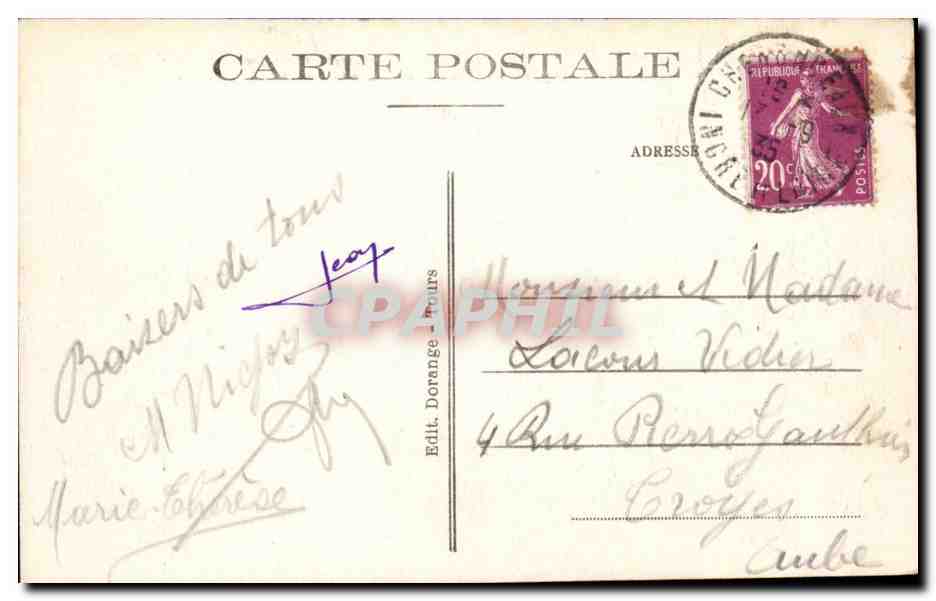 CARTE POSTALE
RÉPUBLIQUE FRANÇAISE
20c
POSTES
ADRESSE
Baisers de tous
Jean
Marie-Thérèse
Edit. Dorange - Tours
CPAPHIL
Monsieur et Madame
Lacour Vidier
4 Rue Pierre Gauthier
Troyes
Aube